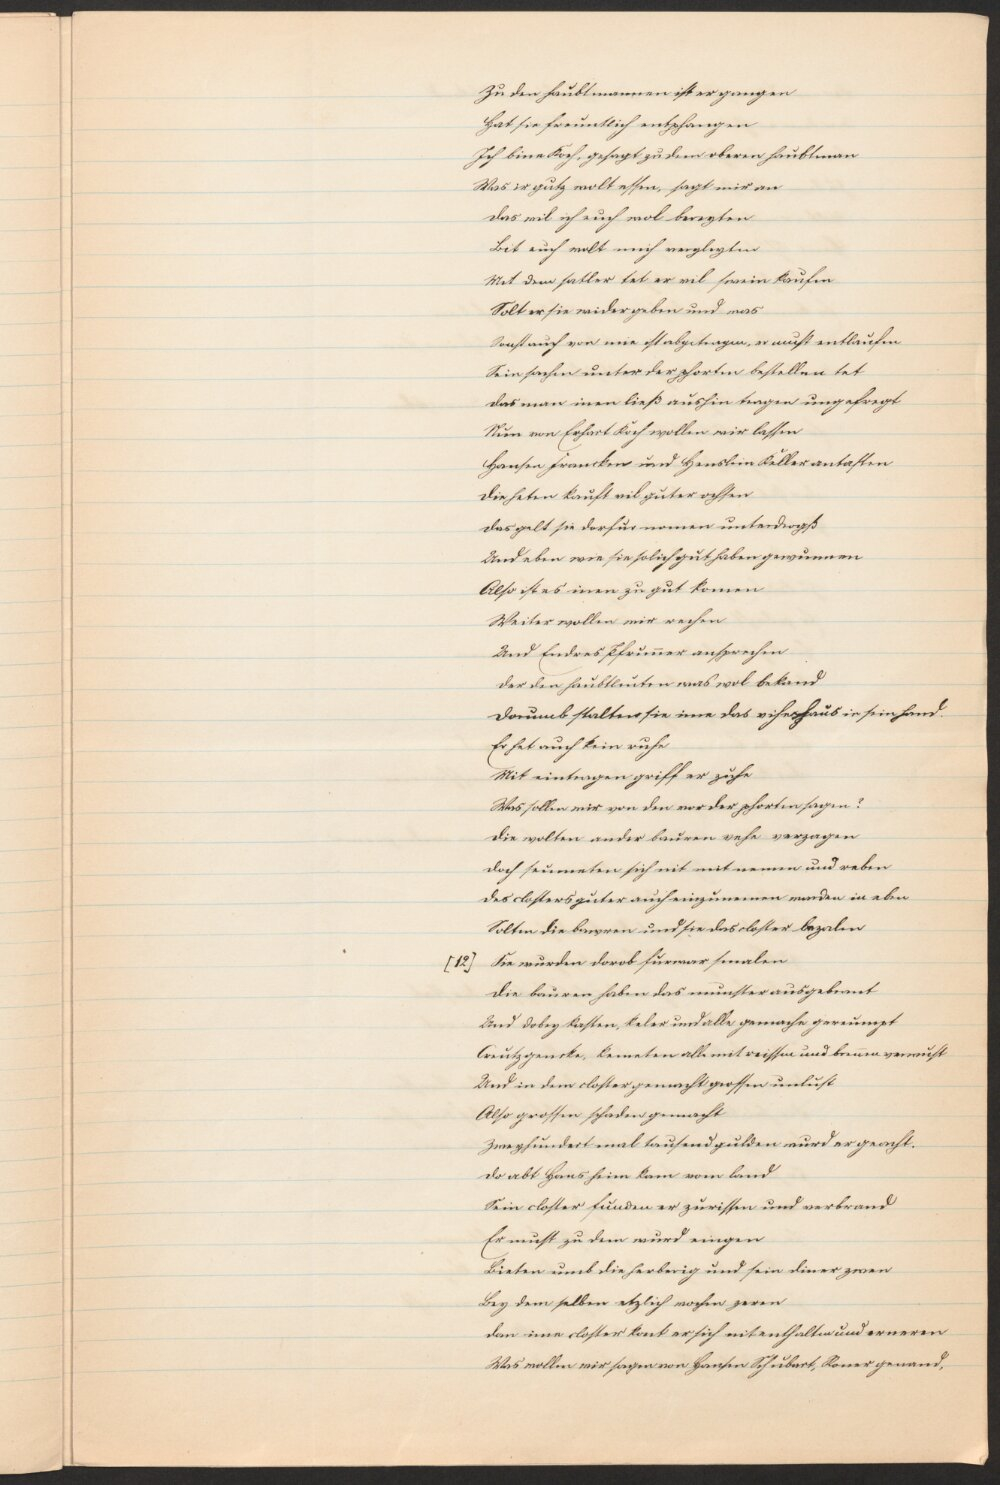 Zu den haubtmannen ist er gangen
Hat sie freuntlich entphangen
Ich bine Koch, gesagt zu dem oberen haubtman
Was ir gutz wolt essen, sagt mir an
Das wil ich euch wol bereyten
Bit euch wolt mich vergleyten
Mit dem satler tet er vil swein kaufen
Solt er sie wider geben und was
Sonst auch von ime ist abgetragen, er must entlaufen
Sein sachen unter der phorten bestellen tet
Das man inen ließ aushin tragen ungefregt
Nun von Erhart Koch wollen wir lassen
Hansen Francken und Henslein Keller antasten
Die heten kauft vil guter ochsen
Das gelt sie dorfur nomen
Und eben wie sie solich gut haben gewunnen
Also ist es inen zu gut komen
Weiter wollen wir rechen
Und Endres Pfrümer ansprechen
Der den haubtleuten was wol bekand
Dorumb stalten sie ime das vihehaus in sein hand.
Er het auch kein ruhe
Mit eintragen griff er zuhe
Was sollen wir von den vor der phorten sagen?
Die wolten ander bauren vehe verzagen
Doch seumeten sich nit mit nemen und
Des closters guter auch einzunemen wurden in eben
Solten die bawren und sie das closter bezalen
[12] Sie wurden dorob furwar smalen
Die bauren haben das munster ausgebrant
Und dobey kasten, keler und alle gemache gereumpt
Creutzgencke, kemeten alle mit reissen und brennen verwust
Und in dem closter gemacht grossen unlust
Also grossen schaden gemacht
Zweyhundert mal tausend gulden wurd er geacht.
Do abt Hans heim kam vom land
Sein closter funden er zurissen und verbrand
Er must zu dem wurd eingen
Bieten umb die herberig und sein diner zwen
Bey dem selben etzlich wochen zeren
Dan ime closter kont er sich nit enthalten und erneren
Was wollen wir sagen von Hansen Schubart, Koner genand,